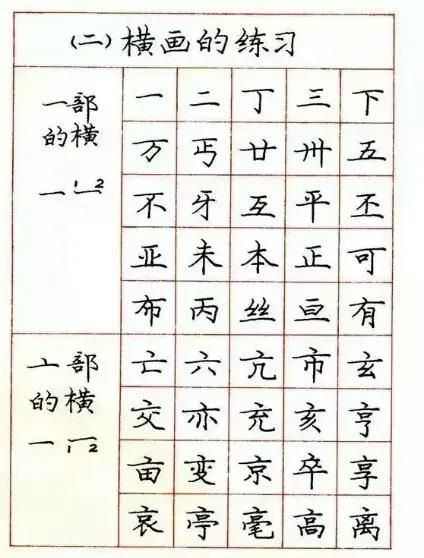 （二）横画的练习
一部
的横
一 1 一 2
一 二 丁 三 下
万 丐 廿 卅 五
不 牙 互 平 丕
亚 未 本 正 可
布 丙 丝 亘 有
亠部
的横
一 一 1 2
亡 六 亢 市 玄
交 亦 充 亥 亨
亩 变 京 卒 享
哀 亭 毫 高 离